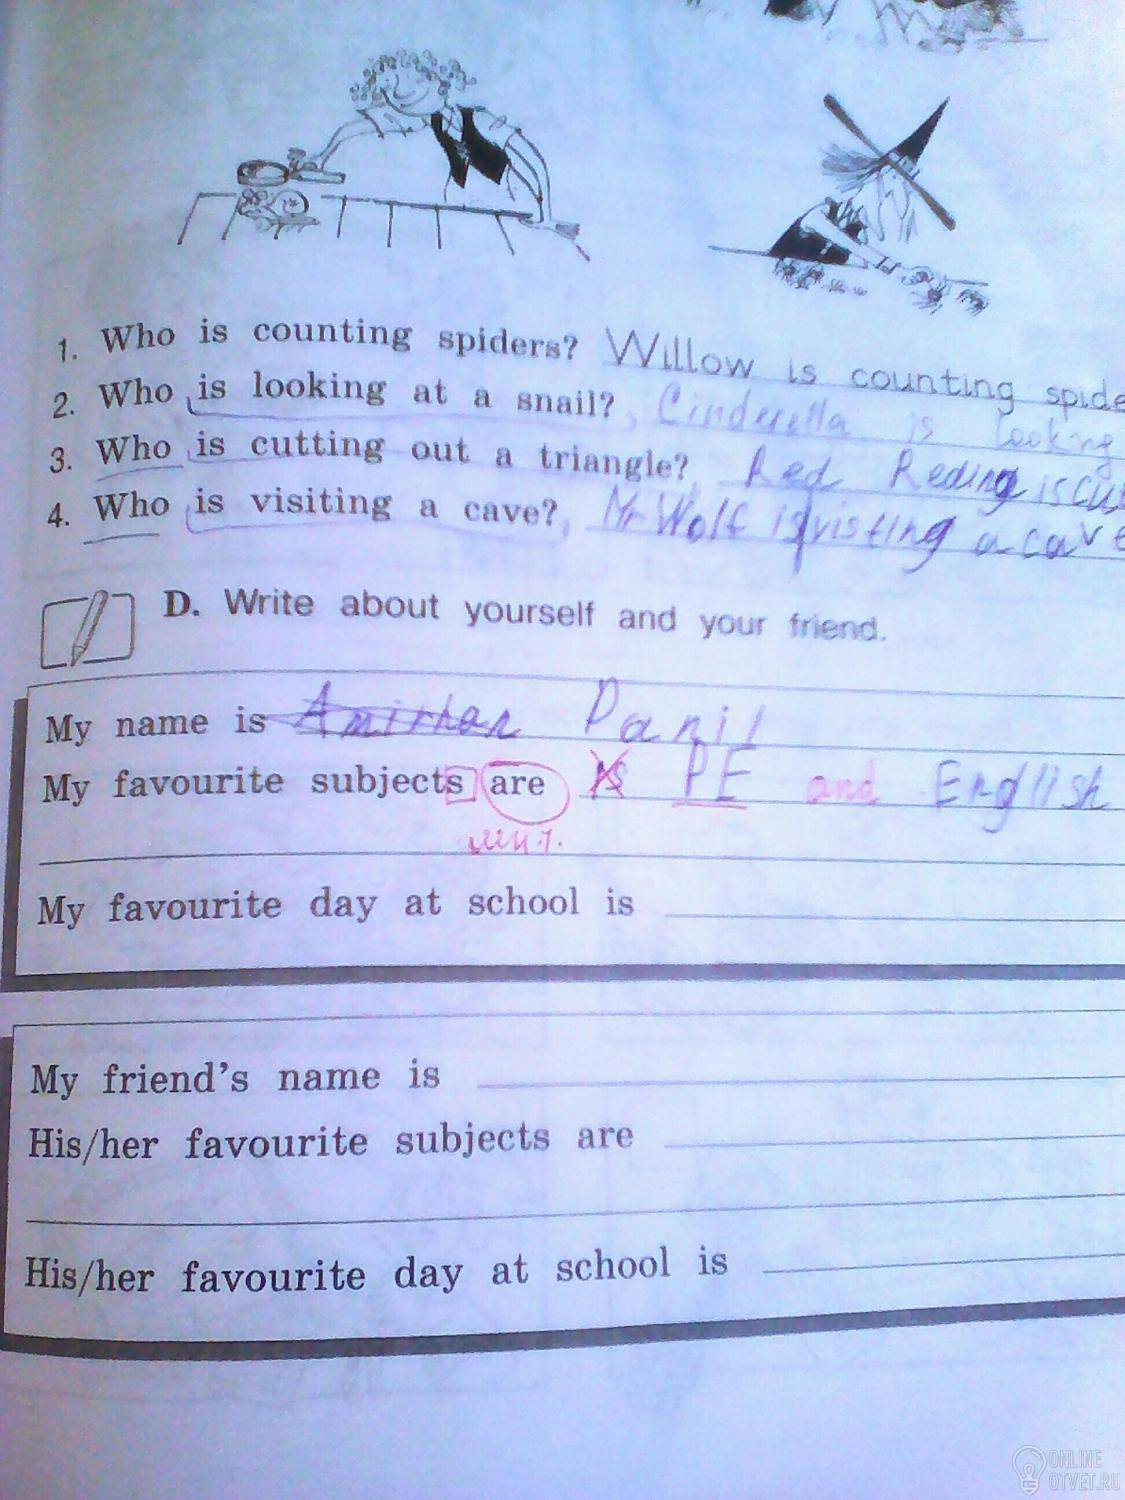 1. Who is counting spiders? Willow is counting spide
2. Who is looking at a snail? Cinderella is looking
3. Who is cutting out a triangle? Red Reding is cu
4. Who is visiting a cave? Mr Wolf is visting a cave
D. Write about yourself and your friend.
My name is Danil
My favourite subjects are is PE and English
мн.ч.
My favourite day at school is
My friend's name is
His/her favourite subjects are
His/her favourite day at school is
ONLINE
OTVET.RU